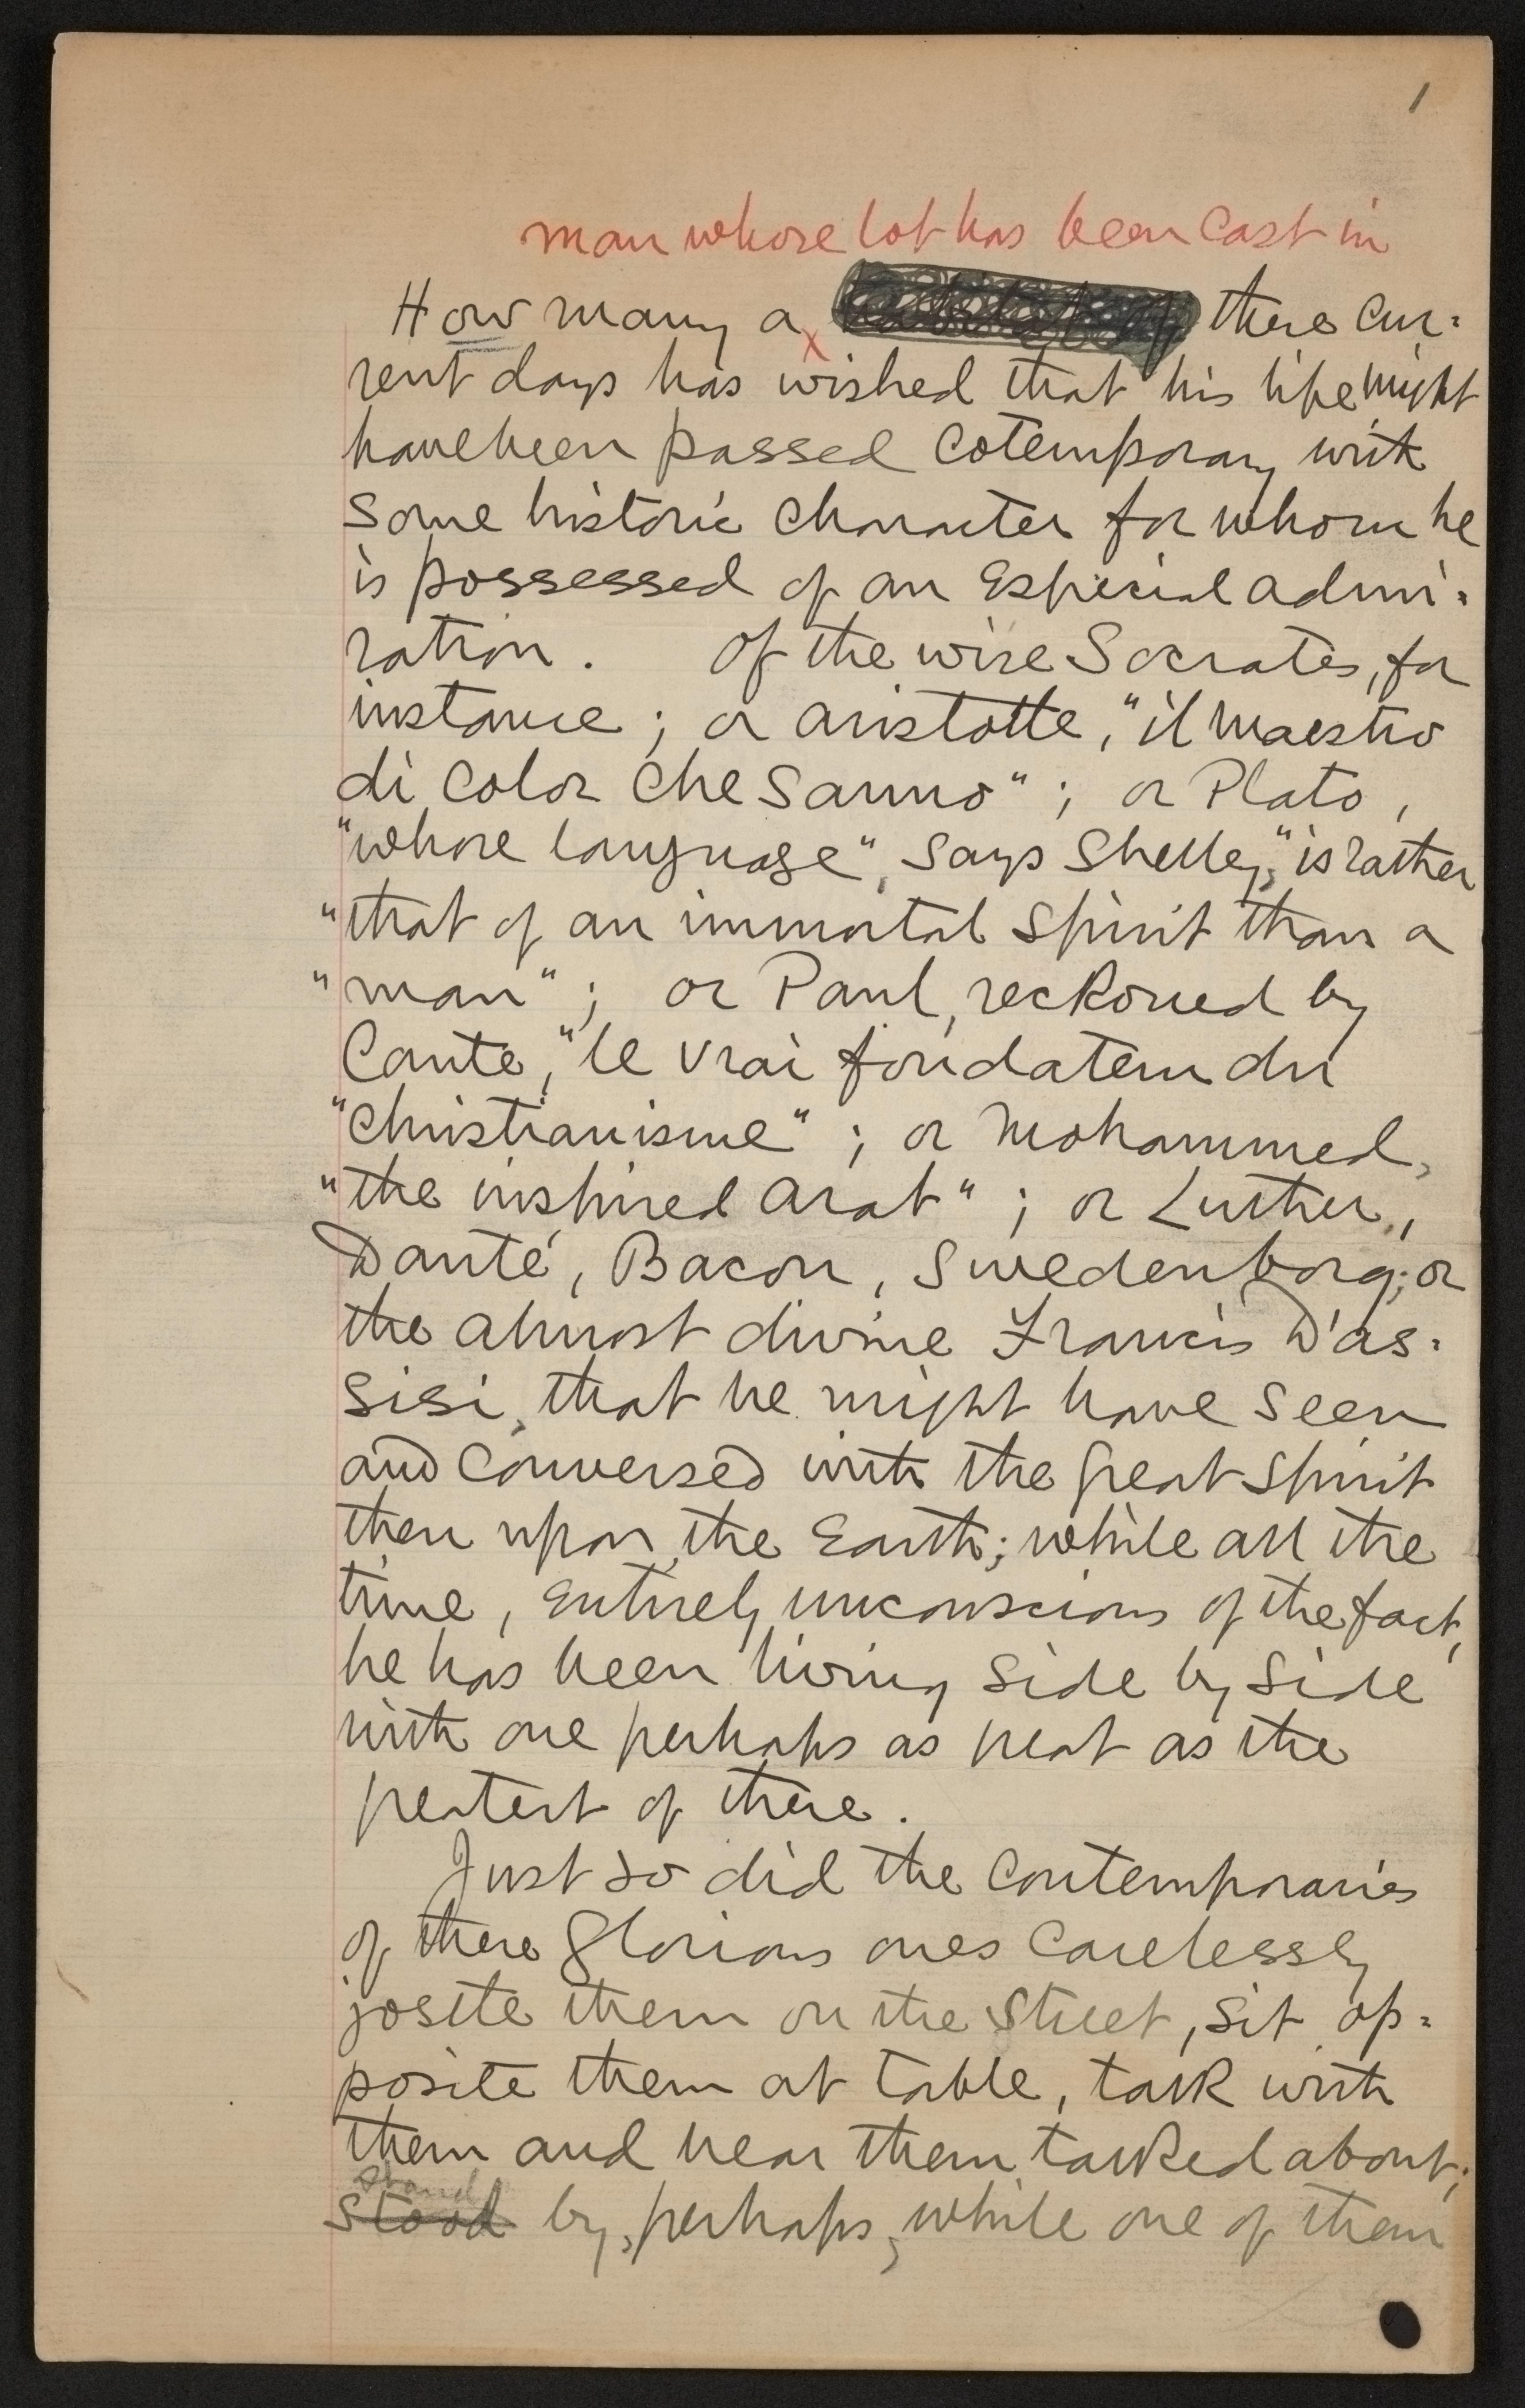 1
man whose lot has been cast in
How many a these cur=
rent days has wished that his life might
have been passed cotemporary with
some historic character for whom he
is possessed of an especial admi=
ration. Of the wise Socrates, for
instance; or Aristotle, "il maestro
di color che sanno"; or Plato,
"whose language", says Shelley, "is rather
"that of an immortal spirit than a
"man"; or Paul, reckoned by
Comte, "le vrai fondateur du
"Christianisme"; or Mohammed,
"the inspired Arab"; or Luther,
Danté, Bacon, Swedenborg; or
the almost divine Francis D'as=
sisi, that he might have seen
and conversed with the great spirit
then upon the Earth; while all the
time, entirely unconscious of the fact,
he has been living side by side
with one perhaps as great as the
greatest of these.
Just so did the contemporaries
of these glorious ones carelessly
josltle them on the street, sit op=
posite them at table, talk with
them and hear them talked about;
stand
stood by, perhaps, while one of them